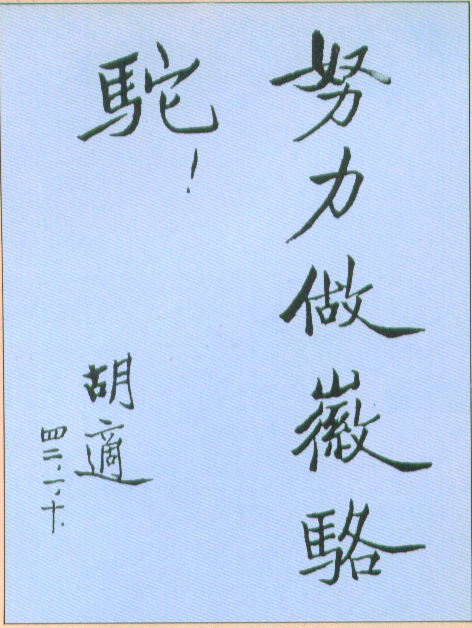 努力做徽駱
駝！
胡適
四二．一．十．